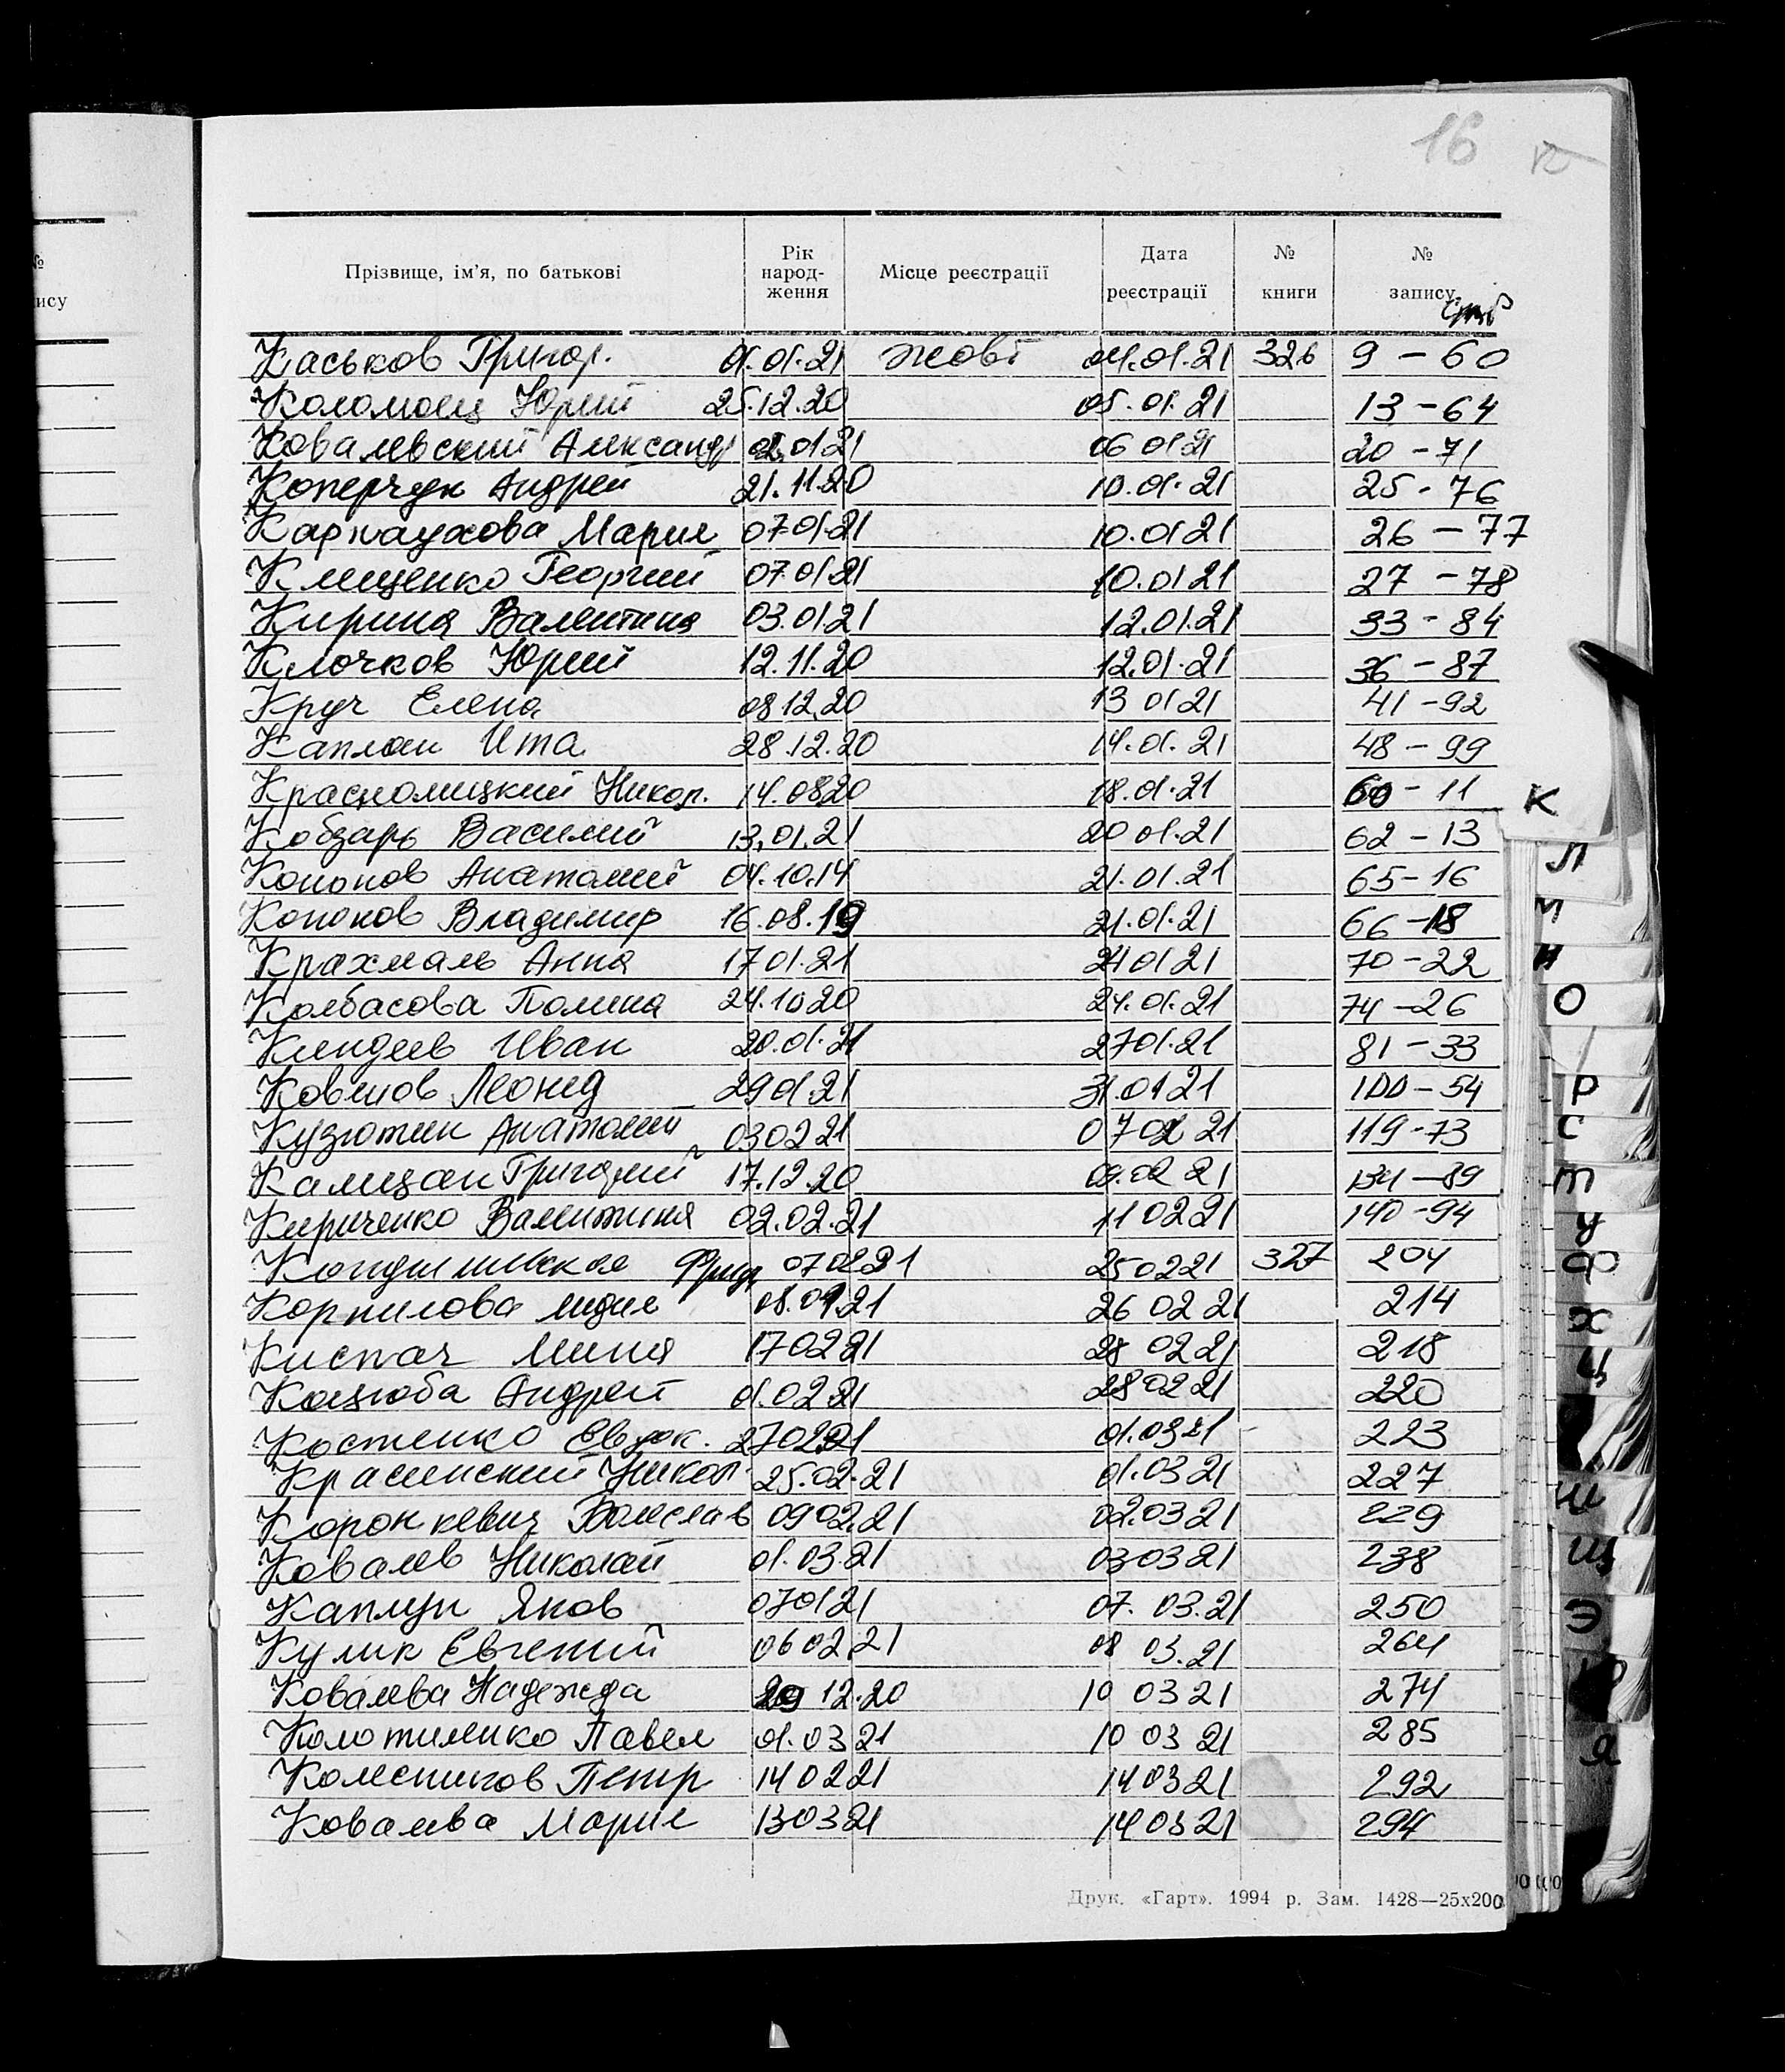 16 К
Прізвище, ім'я, по батькові Рік народження Місце реєстрації Дата реєстрації № книги № запису стр
Каськов Григор. 01.01.21 жовт 04.01.21 326 9 – 60
Коломоец Юрий 25.12.20 05.01.21 13 – 64
Ковалевский Александр 02.01 21 06 01 21 20 – 71
Коперчук Андрей 21.11.20 10.01.21 25 - 76
Карнаухова Мария 07.01.21 10.01 21 26 – 77
Клищенко Георгий 07.01.21 10.01 21 27 – 78
Кирина Валентина 03.01 21 12.01.21 33 - 84
Клочков Юрий 12.11.20 12.01.21 36 – 87
Круч Елена 08 12.20 13 01 21 41 – 92
Каплан Ита 28.12.20 14.01.21 48 – 99
Краснолицкий Никол. 14.08 20 18.01.21 60 - 11
Кобзарь Василий 13.01.21 20 01.21 62 – 13
Кононов Анатолий 04.10.14 21.01.21 65 – 16
Кононов Владимир 16.08.19 21.01.21 66 – 18
Крахмаль Анна 17 01.21 24 01 21 70 – 22
Колбасова Полина 24.10 20 24.01.21 74 – 26
Киндеев Иван 20.01.21 27 01.21 81 – 33
Леонид 29 01.21 31.01 21 100 – 54
Кузютин Анатолий 03 02 21 07 02 21 119 - 73
Калицан Григорий 17.12.20 09.02 21 134 – 89
Кириченко Валентина 02.02.21 11 02 21 140 - 94
07 02 21 25 02 21 327 204
Корнилова Лидия 26 02 21 214
Киспач 17 02 21 28 02 21 218
Кацюба Андрей 01.02 21 28 02 21 220
Костенко Евдок. 27 02 21 01.03 21 223
Красинский Никол. 25.02.21 01.03 21 227
Коронкевич Болеслав 09 02.21 02.03 21 229
Ковалев Николай 01.03.21 03 03 21 238
Каплун Яков 07 01 21 07.03.21 250
Кулик Евгений 06 02.21 08 03.21 264
Ковалева Надежда 29 12.20 10 03 21 274
Колотиленко Павел 01.03 21 10 03 21 285
Колесников Петр 14 02 21 14 03 21 292
Ковалева Мария 13 03 21 14 03 21 294
Друк. «Гарт». 1994 р. Зам. 1428—25х200
№
ису
К
Л
М
Н
О
Р
С
Т
У
Ф
Х
Ц
Ш
Щ
Э
Ю
Я